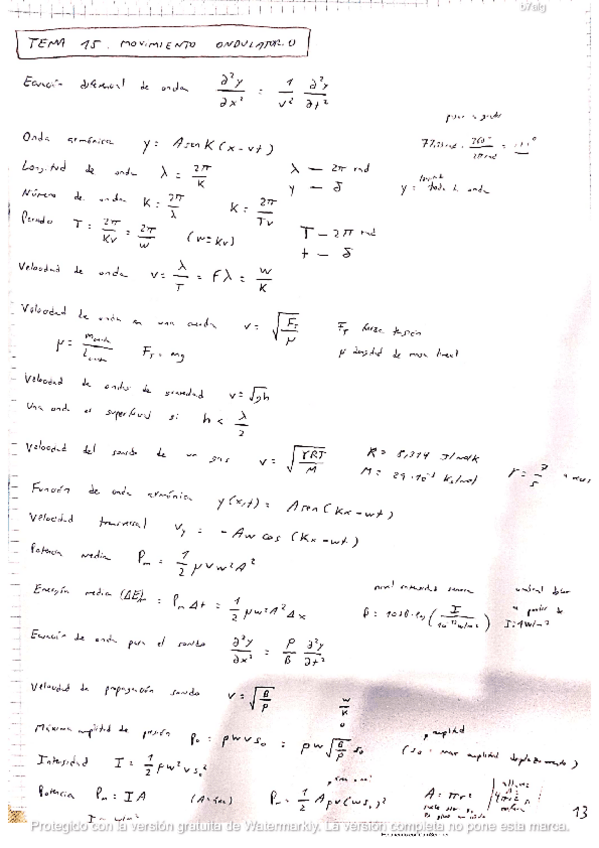 b7elg
TEMA 15. MOVIMIENTO ONDULATORIO
Ecuación diferencial de onda ∂²y/∂x² = 1/v² ∂²y/∂t²
Onda armónica y = A sen K(x-vt)
Longitud de onda λ = 2π/K λ — 2π rad
y — δ
Número de onda K = 2π/λ K = 2π/Tv
y = toda la onda
Periodo T = 2π/Kv = 2π/w (w=Kv) T — 2π rad
t — δ
Velocidad de onda v = λ/T = Fλ = w/K
Velocidad de onda en una cuerda v = √(F_T/μ) F_T fuerza tensión
μ = m cuerda/L cuerda F_T = mg μ densidad de masa lineal
Velocidad de ondas de gravedad v = √gh
Una onda es superficial si h < λ/2
Velocidad del sonido de un gas v = √(γRT/M) R = 8,314 J/molK
M = 29·10⁻³ Kg/mol γ = 7/5
Función de onda armónica y(x,t) = A sen(Kx-wt)
Velocidad transversal v_y = -Aw cos(Kx-wt)
Potencia media P_m = 1/2 μvw²A²
Energía media (ΔE)m = P_m Δt = 1/2 μw²A²Δx
nivel intensidad sonora
β = 10dB·lg(I/10⁻¹²w/m²)
umbral dolor
a partir de
I=1W/m²
Ecuación de onda para el sonido ∂²y/∂x² = ρ/B ∂²y/∂t²
Velocidad de propagación sonido v = √(B/ρ) w/K
Máxima amplitud de presión p₀ = ρwvs₀ = ρw√(B/ρ) s₀ (s₀ = max amplitud desplazamiento)
amplitud
Intensidad I = 1/2 ρw²vs₀²
Potencia P_m = IA (A=área) P_m = 1/2 Aρv(ws₀)² A = πr²
4πr²
13
Protegido con la versión gratuita de Watermarkly. La versión completa no pone esta marca.